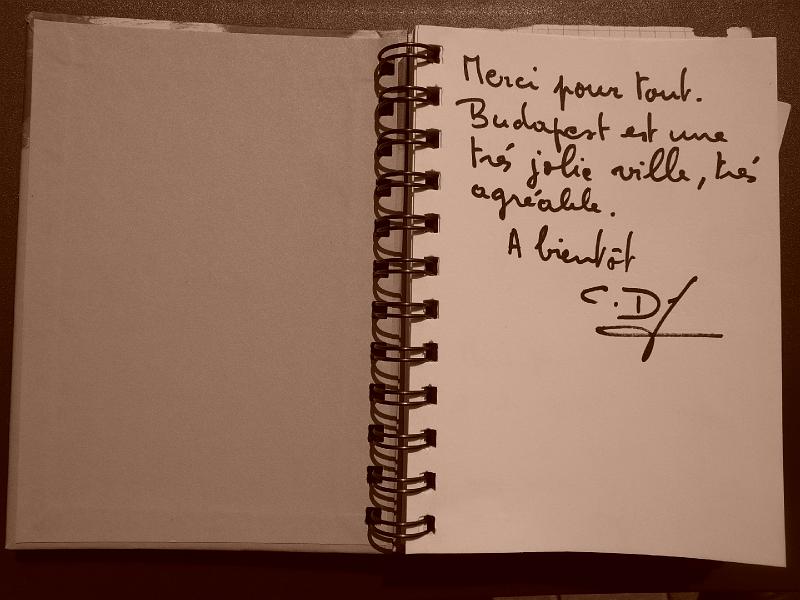 Merci pour tout.
Budapest est une
trés jolie ville, trés
agréable.
A bientôt
C.D